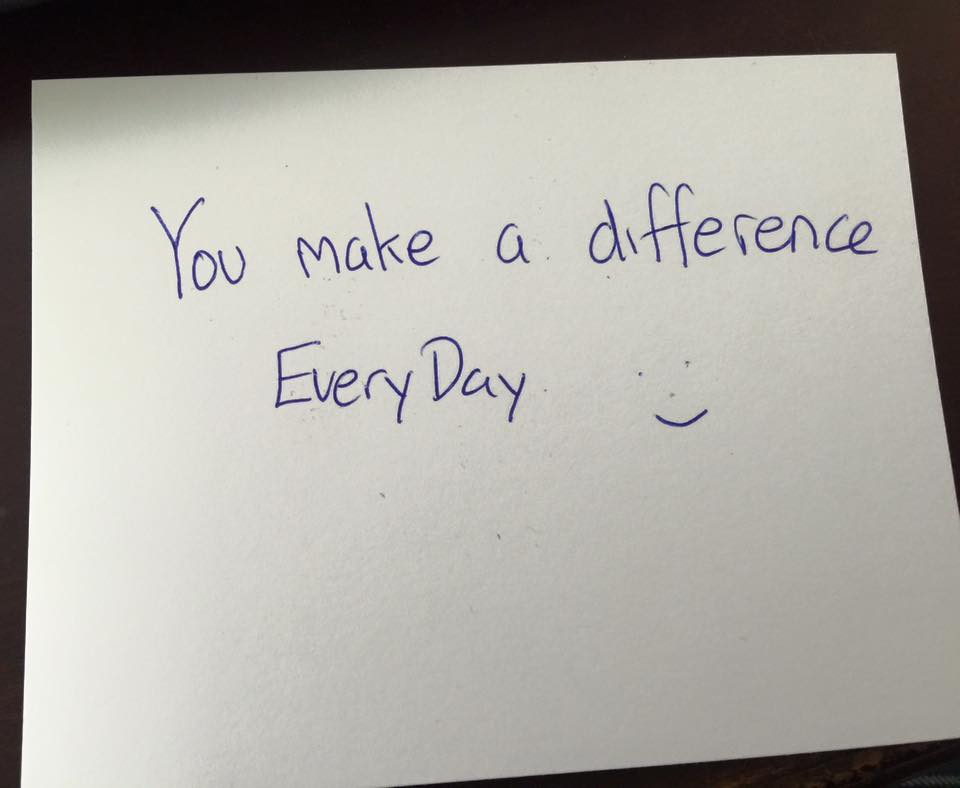 You make a difference
Every Day